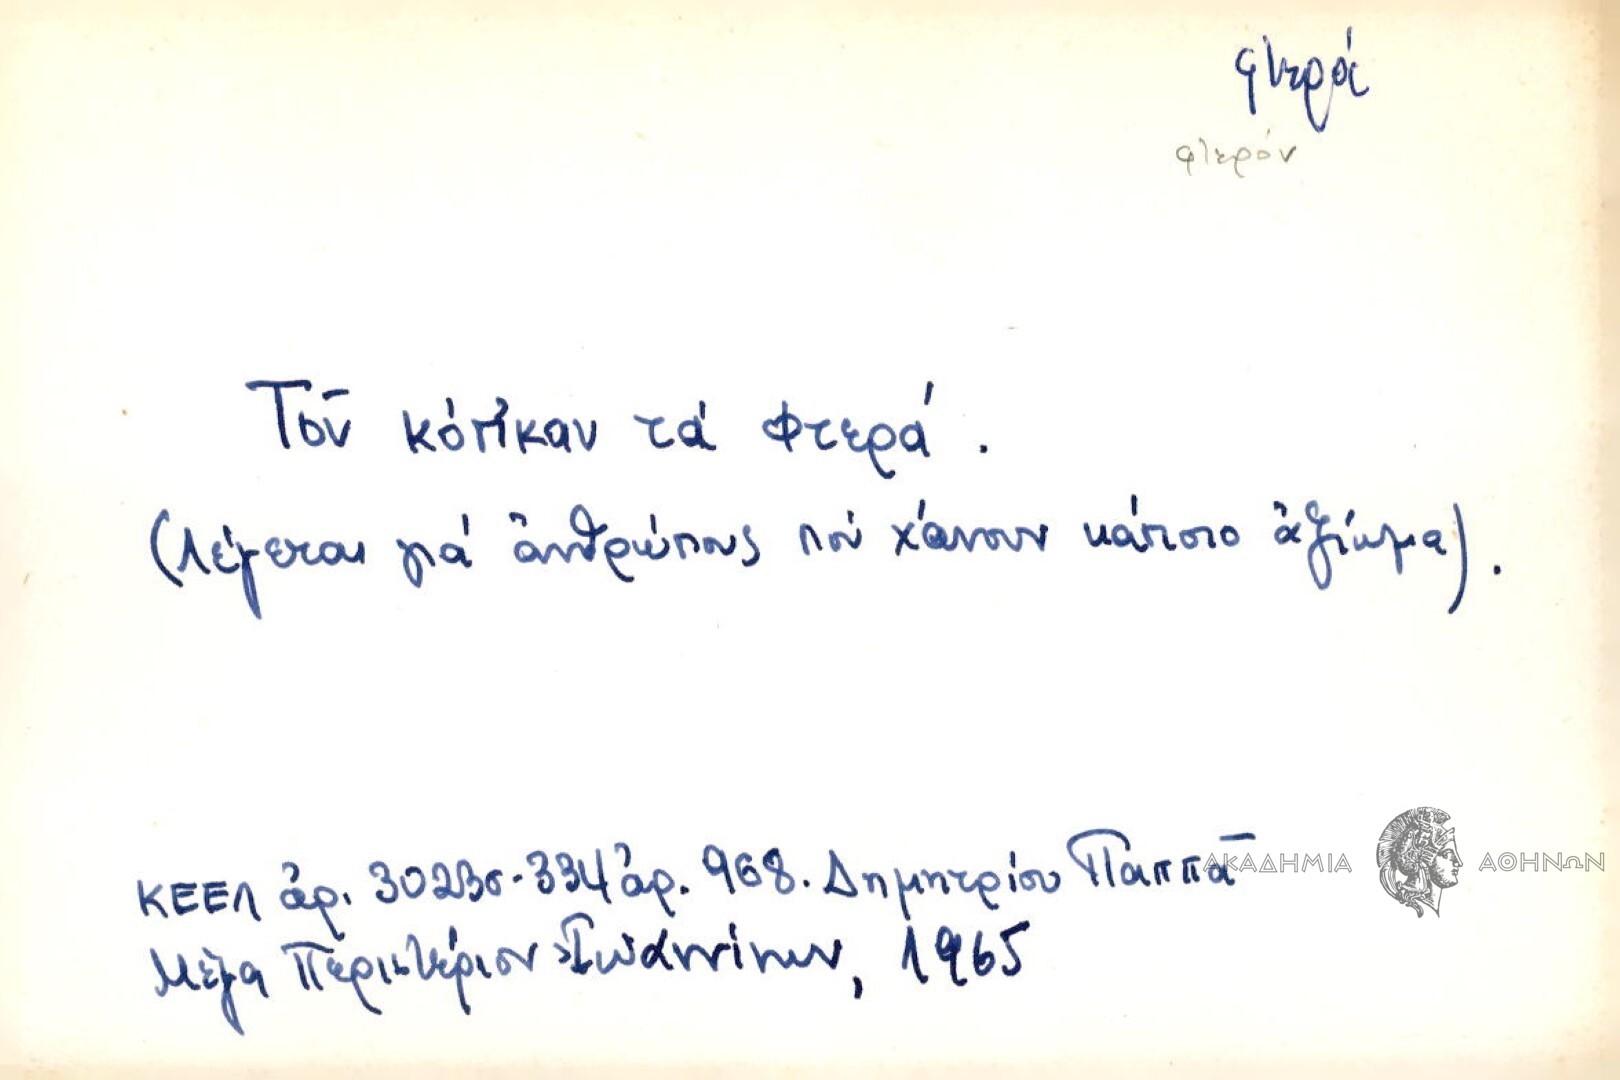 φτερά
φτερόν
Τοῦ κόπ'καν τά φτερά.
(Λέγεται γιά ἀνθρώπους πού χάνουν κάποιο ἀξίωμα).
ΚΕΕΛ ἀρ. 3023 σ. 334 ἀρ. 968. Δημητρίου Παππᾶ
Μέγα Περιστέριον Ἰωαννίνων, 1965
ΑΚΑΔΗΜΙΑ ΑΘΗΝΩΝ